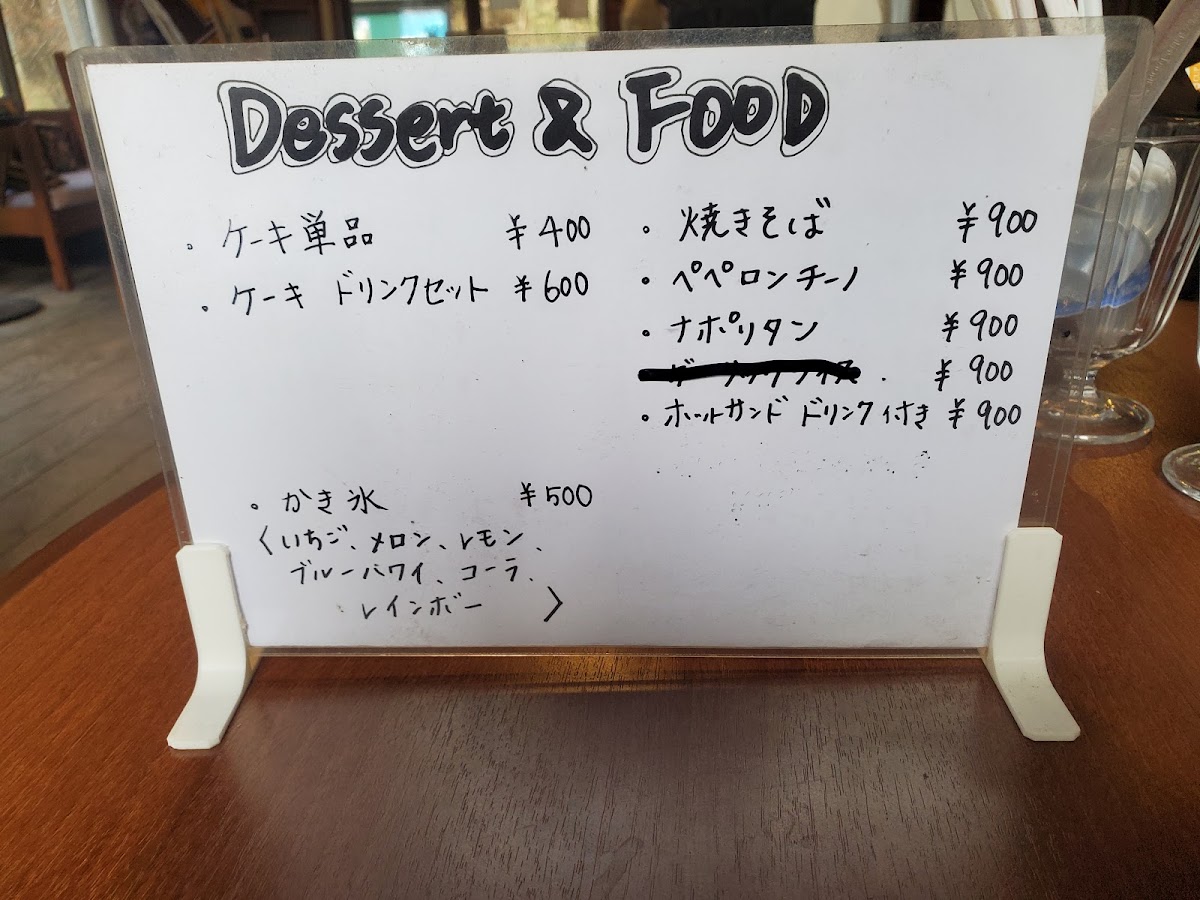 Dessert & FOOD
・ケーキ単品 ¥400
・ケーキ ドリンクセット ¥600
・かき氷 ¥500
〈いちご、メロン、レモン、
ブルーハワイ、コーラ、
レインボー 〉
・焼きそば ¥900
・ペペロンチーノ ¥900
・ナポリタン ¥900
¥900
・ホットサンド ドリンク付き ¥900